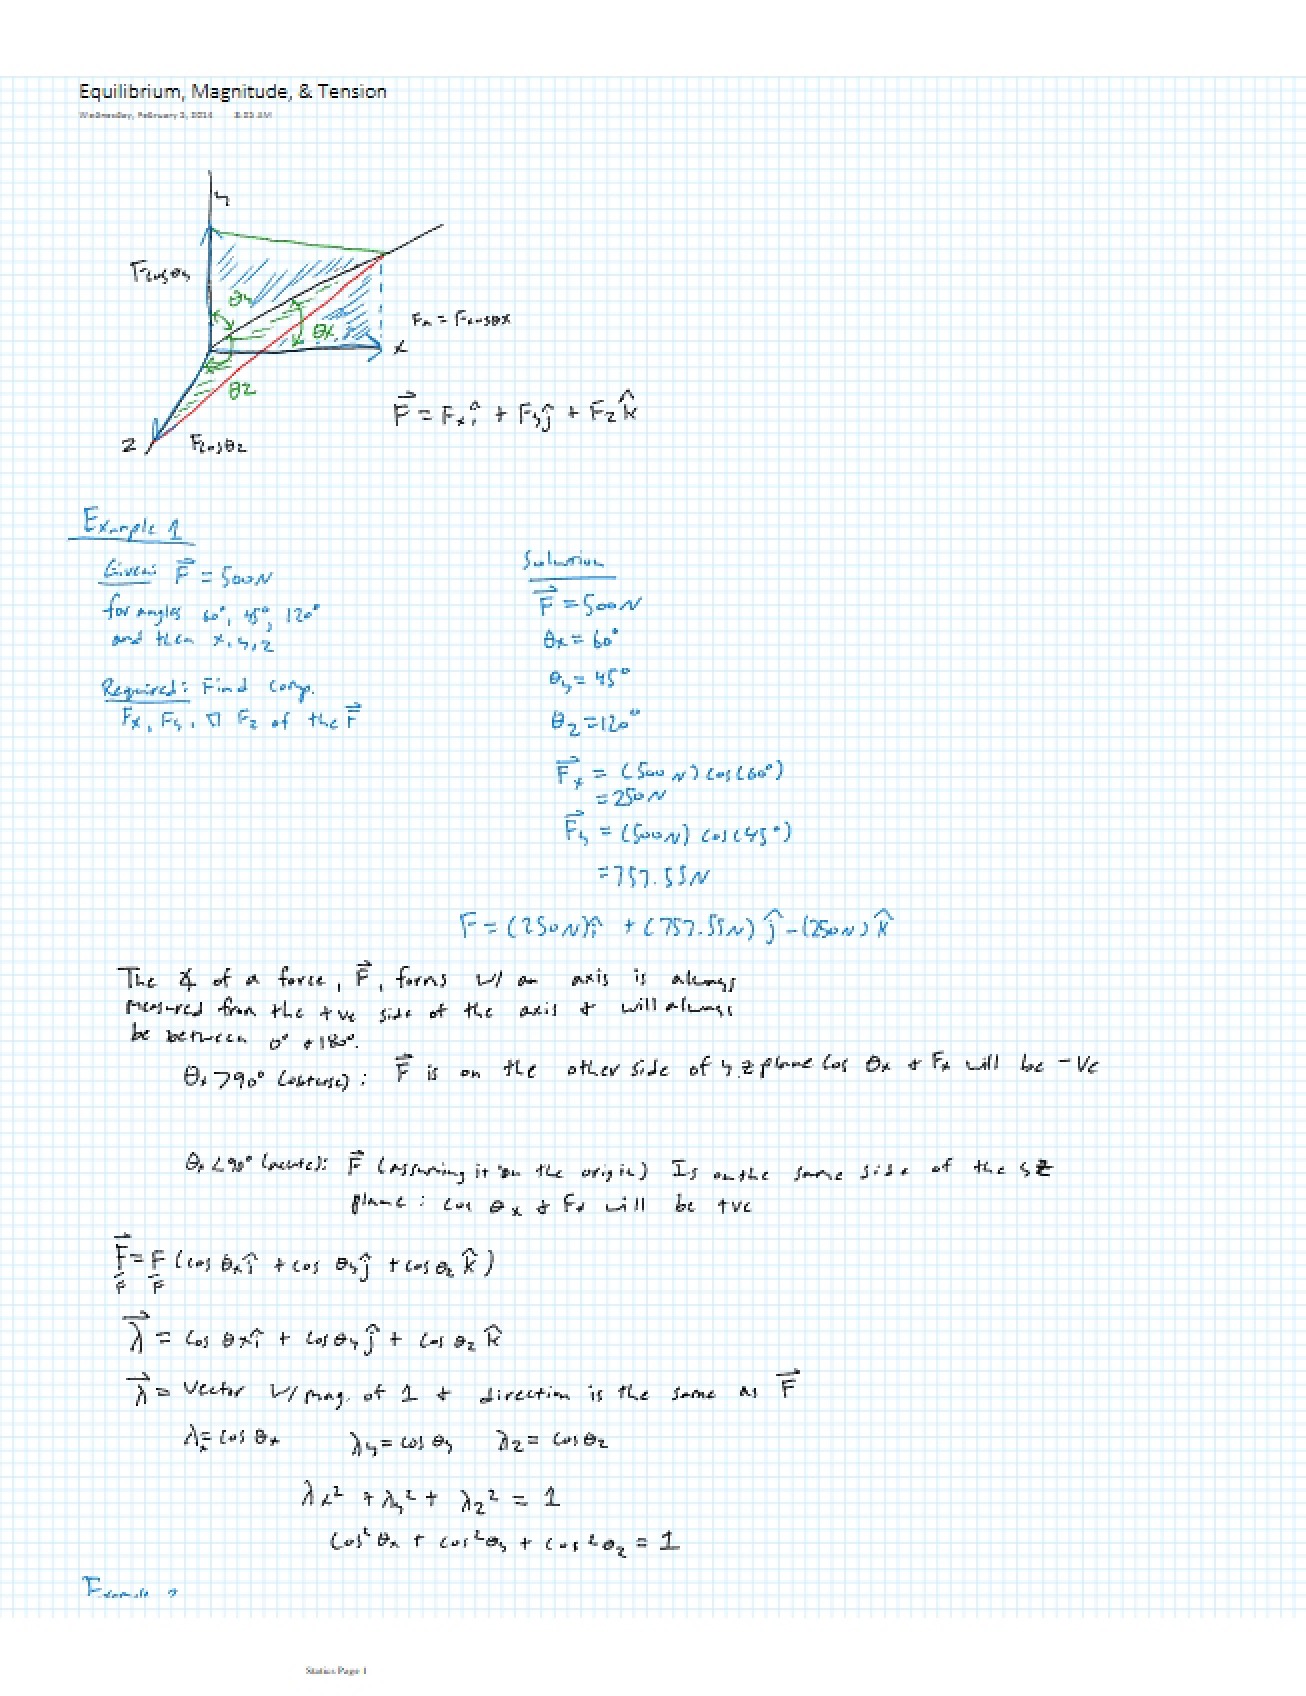 Equilibrium, Magnitude, & Tension
Wednesday, February 5, 2014 8:03 AM
y
Fcosθy
θy
θx
Fx = Fcosθx
x
θz
F⃗ = Fx î + Fy ĵ + Fz k̂
z
Fcosθz
Example 1
Given: F⃗ = 500N
for angles 60°, 45°, 120°
and then x, y, z
Required: Find comp.
Fx, Fy, & Fz of the F⃗
Solution
F⃗ = 500N
θx = 60°
θy = 45°
θz = 120°
F⃗x = (500N) cos(60°)
= 250N
F⃗y = (500N) cos(45°)
= 757.55N
F = (250N)î + (757.55N) ĵ - (250N) k̂
The ∡ of a force, F⃗, forms w/ an axis is always
measured from the +ve side of the axis + will always
be between 0° + 180°.
θx > 90° (obtuse): F⃗ is on the other side of y z plane cos θx + Fx will be -ve
θx < 90° (acute): F⃗ (assuming it on the origin) Is on the same side of the y z
plane: cos θx + Fx will be +ve
F⃗/F = F/F (cos θx î + cos θy ĵ + cos θz k̂)
λ⃗ = cos θx î + cos θy ĵ + cos θz k̂
λ⃗ = Vector w/ mag. of 1 + direction is the same as F⃗
λx = cos θx λy = cos θy λz = cos θz
λx² + λy² + λz² = 1
cos² θx + cos² θy + cos² θz = 1
Example 2
Statics Page 1